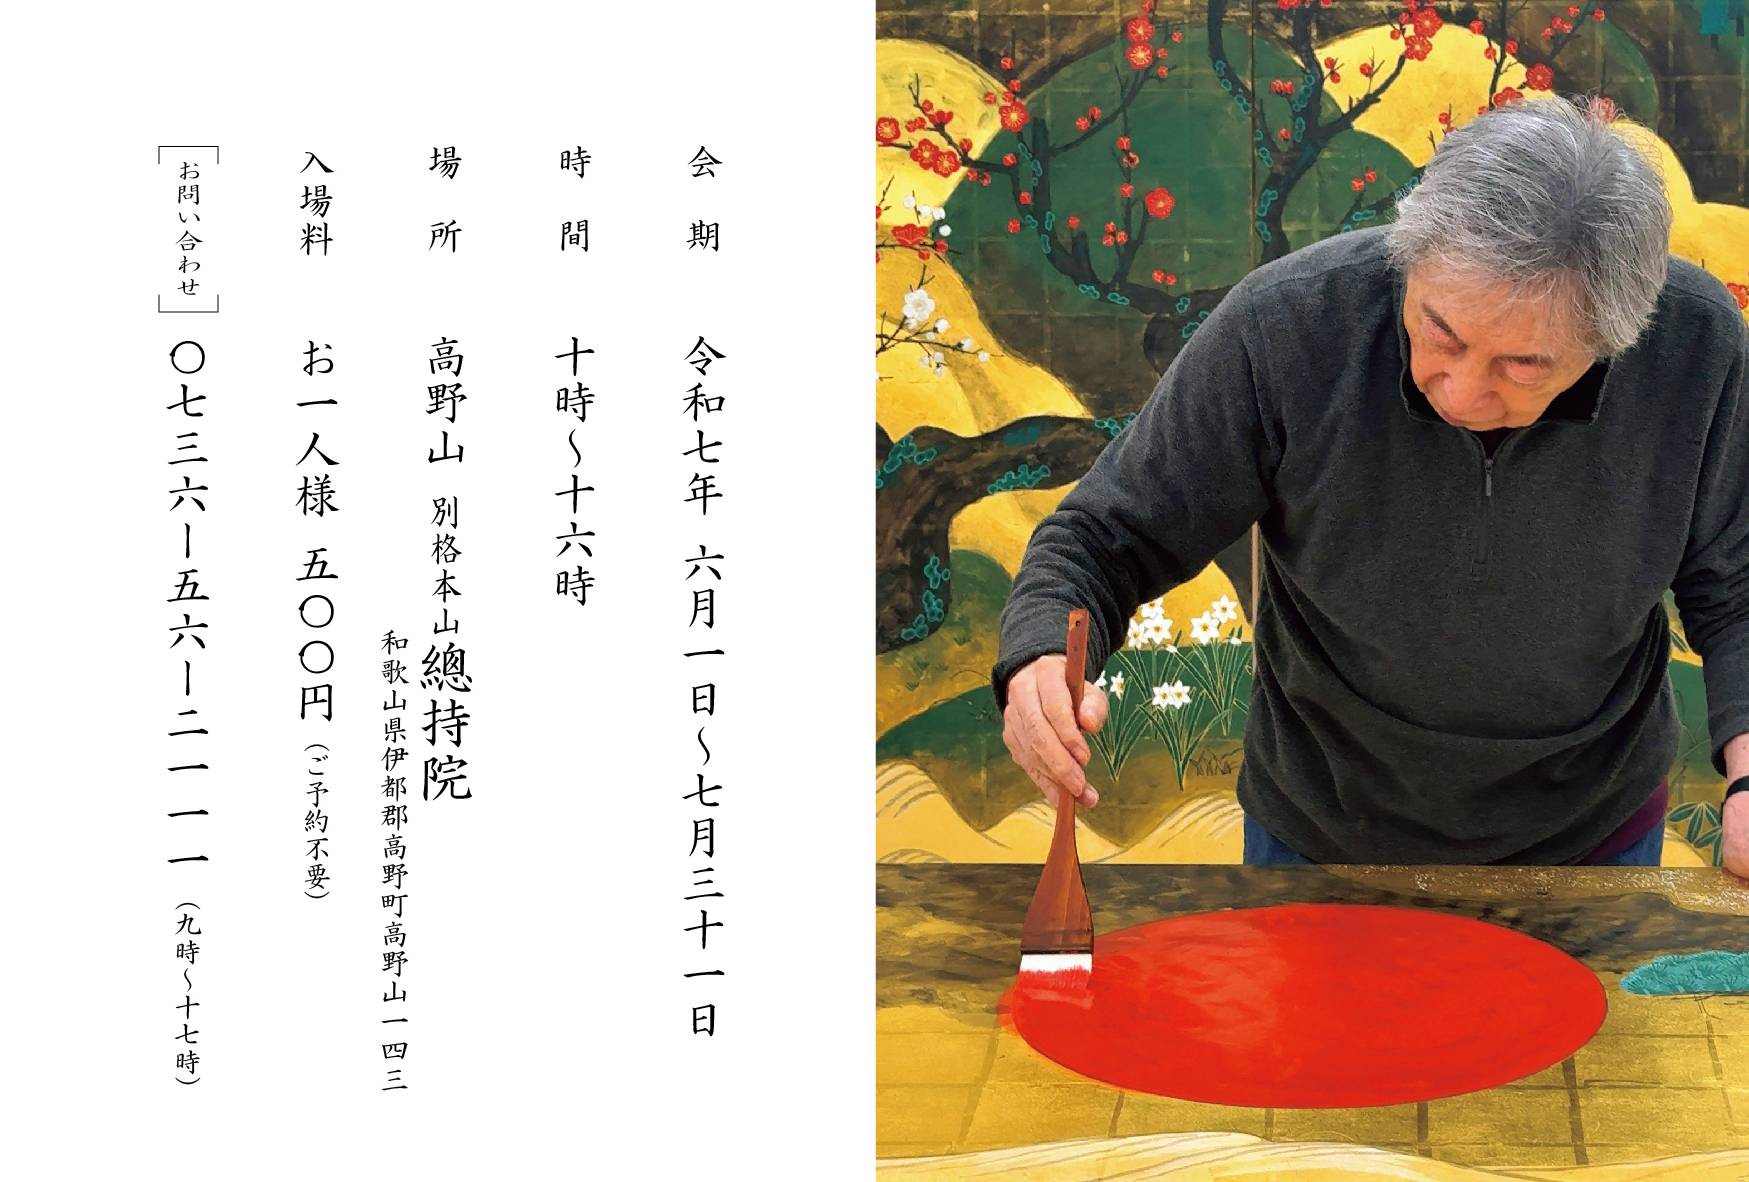 会期 令和七年 六月一日〜七月三十一日
時間 十時〜十六時
場所 高野山 別格本山總持院
和歌山県伊都郡高野町高野山一四三
入場料 お一人様 五〇〇円（ご予約不要）
［お問い合わせ］〇七三六ー五六ー二一一一（九時〜十七時）